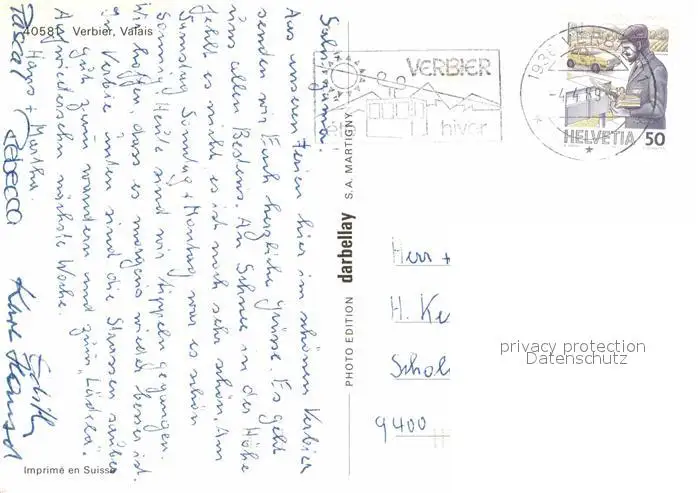 40581 Verbier, Valais
Salü zäma!
Aus unseren Ferien hier im schönen Verbier
senden wir Euch herzliche Grüsse. Es geht
uns allen Bestens. An Schnee in der Höhe
fehlt es nicht, es ist noch sehr schön. Am
Samstag, Sonntag + Montag war es schön
sonnig. Heute sind wir
gegangen.
Wir hoffen, dass es morgens wieder besser ist.
In Verbier unten sind die Strassen sauber
gut zum wandern und zum "Lädela".
Auf wiedersehn nächste Woche.
Hans + Martha.
Pascal Rebecca
Imprimé en Suisse
PHOTO EDITION darbellay S.A. MARTIGNY
VERBIER
hiver
1936 VERBIER
-4.4.89-18
HELVETIA 50
Herr +
H. Ke
Schol
9400
privacy protection
Datenschutz